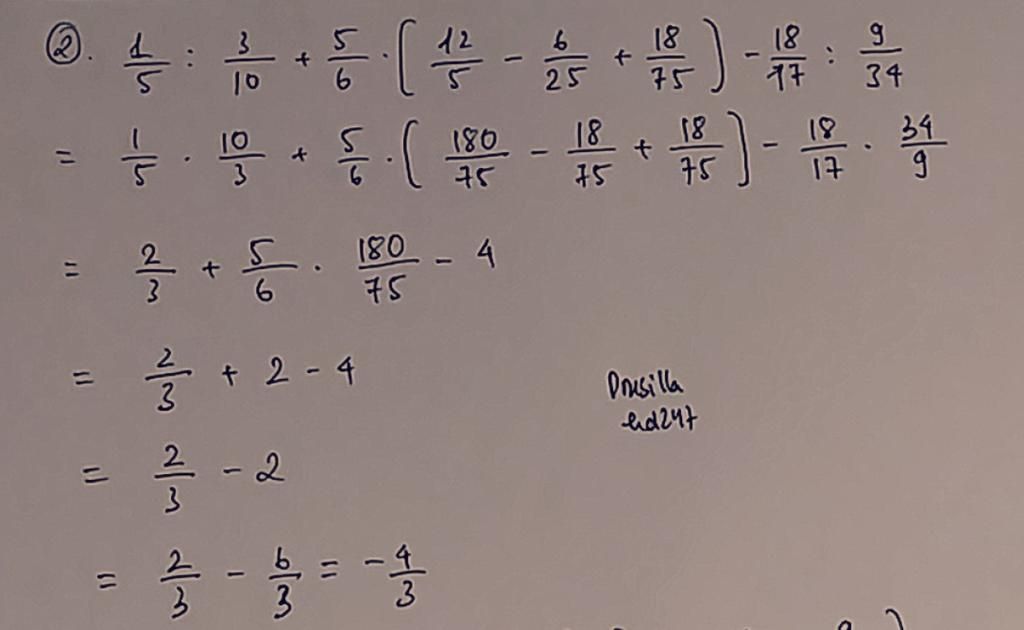 ②. 1/5 : 3/10 + 5/6 · ( 12/5 - 6/25 + 18/75 ) - 18/17 : 9/34
= 1/5 · 10/3 + 5/6 · ( 180/75 - 18/75 + 18/75 ) - 18/17 · 34/9
= 2/3 + 5/6 · 180/75 - 4
= 2/3 + 2 - 4
Drusilla
= 2/3 - 2
= 2/3 - 6/3 = - 4/3